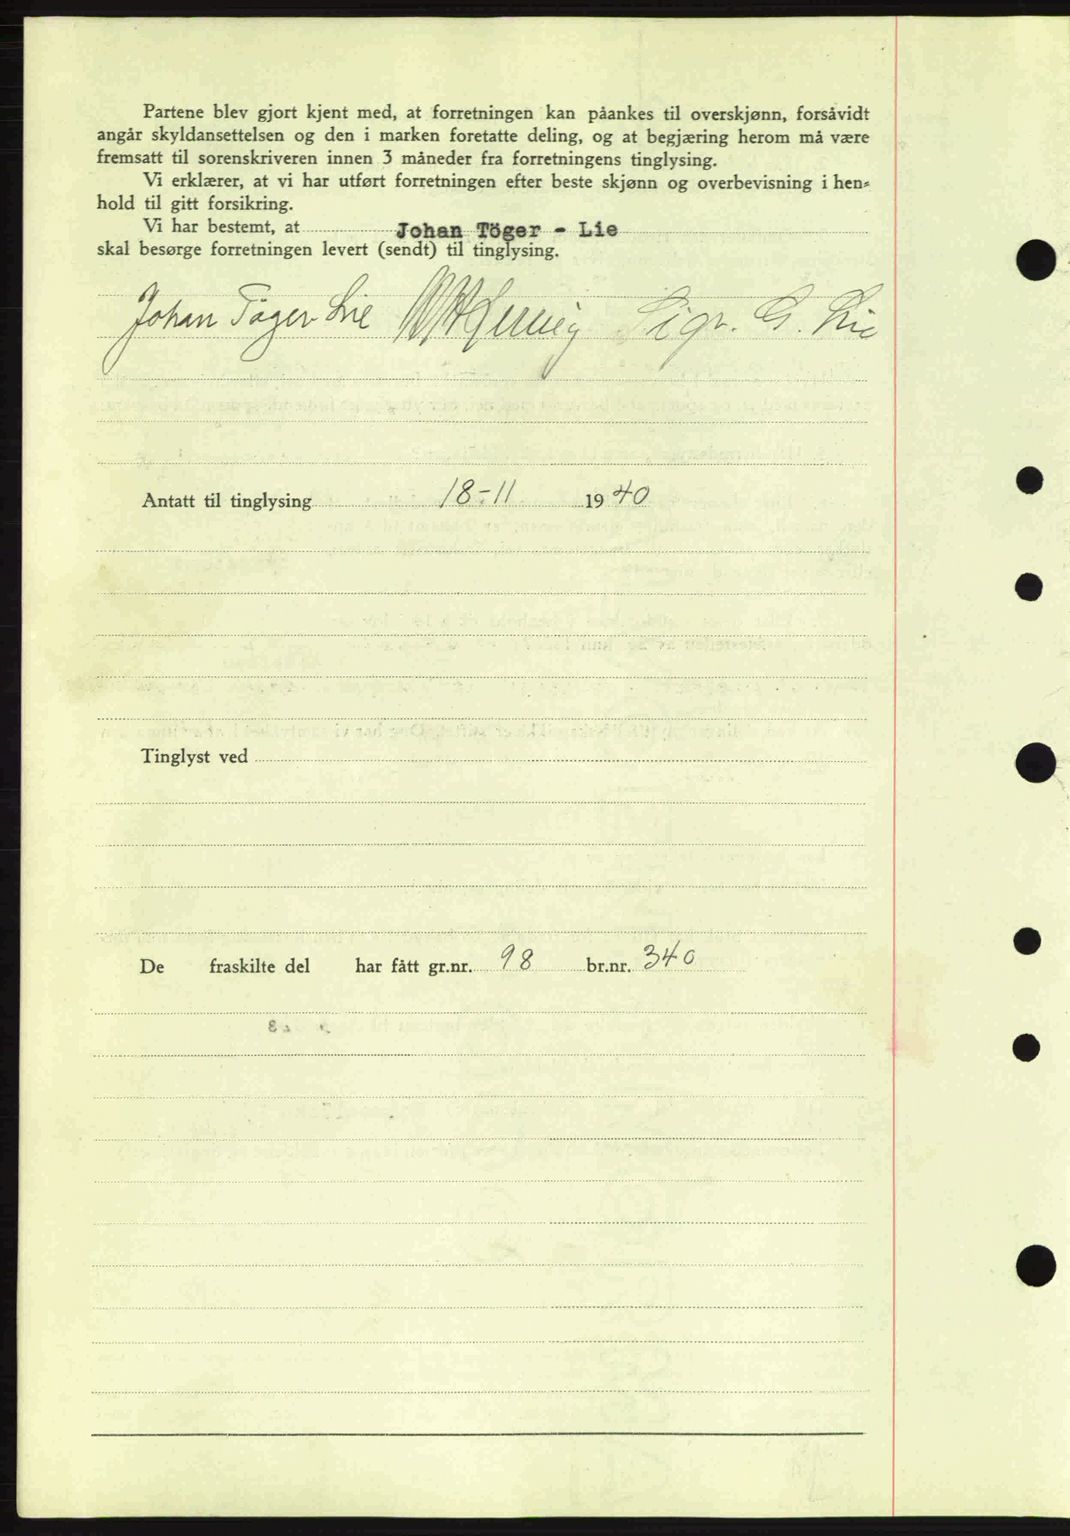 Partene blev gjort kjent med, at forretningen kan påankes til overskjønn, forsåvidt
angår skyldansettelsen og den i marken foretatte deling, og at begjæring herom må være
fremsatt til sorenskriveren innen 3 måneder fra forretningens tinglysing.
Vi erklærer, at vi har utført forretningen efter beste skjønn og overbevisning i hen-
hold til gitt forsikring.
Vi har bestemt, at Johan Töger - Lie
skal besørge forretningen levert (sendt) til tinglysing.
Johan Töger Lie Sigv. G. Lie
Antatt til tinglysing 18-11 1940
Tinglyst ved
De fraskilte del har fått gr.nr. 98 br.nr. 340